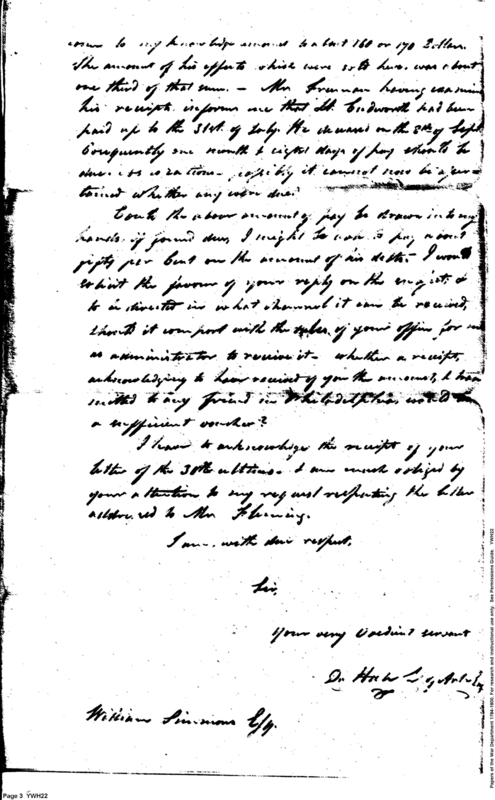 to my knowledge amount to about 160 or 170 Dollars.
The amount of his effects which were sold here was about
one third of that sum. - Mr. Freeman having examin
his receipts informs me that Lt. Cudworth had been
paid up to the 31st. of July. He deceased on the 8th of Sept.
Consequently one month & eight days of pay should be
due. as to rations possibly it cannot now be ascer-
tained whether any were due.
Could the above amount of pay be drawn into my
hands, if found due, I might be able to pay about
fifty per Cent on the amount of his debts. I would
solicit the favour of your reply on the subject, &
to be directed in what channel it can be received,
should it comport with the rules of your office for me
as administrator to receive it - whether a receipt,
acknowledging to have received of you the amount, & trans
mitted to any friend in Philadelphia, would be
a sufficient voucher?
I have to acknowledge the receipt of your
letter of the 30th ultimo & am much obliged by
your attention to my request respecting the letter
addressed to Mr. Fleming.
I am, with due respect,
Sir,
Your very Obedient servant
William Simmons Esq.
Page 3 YWH22
Papers of the War Department 1784-1800. For research and instructional use only. See Permissions Guide. YWH22